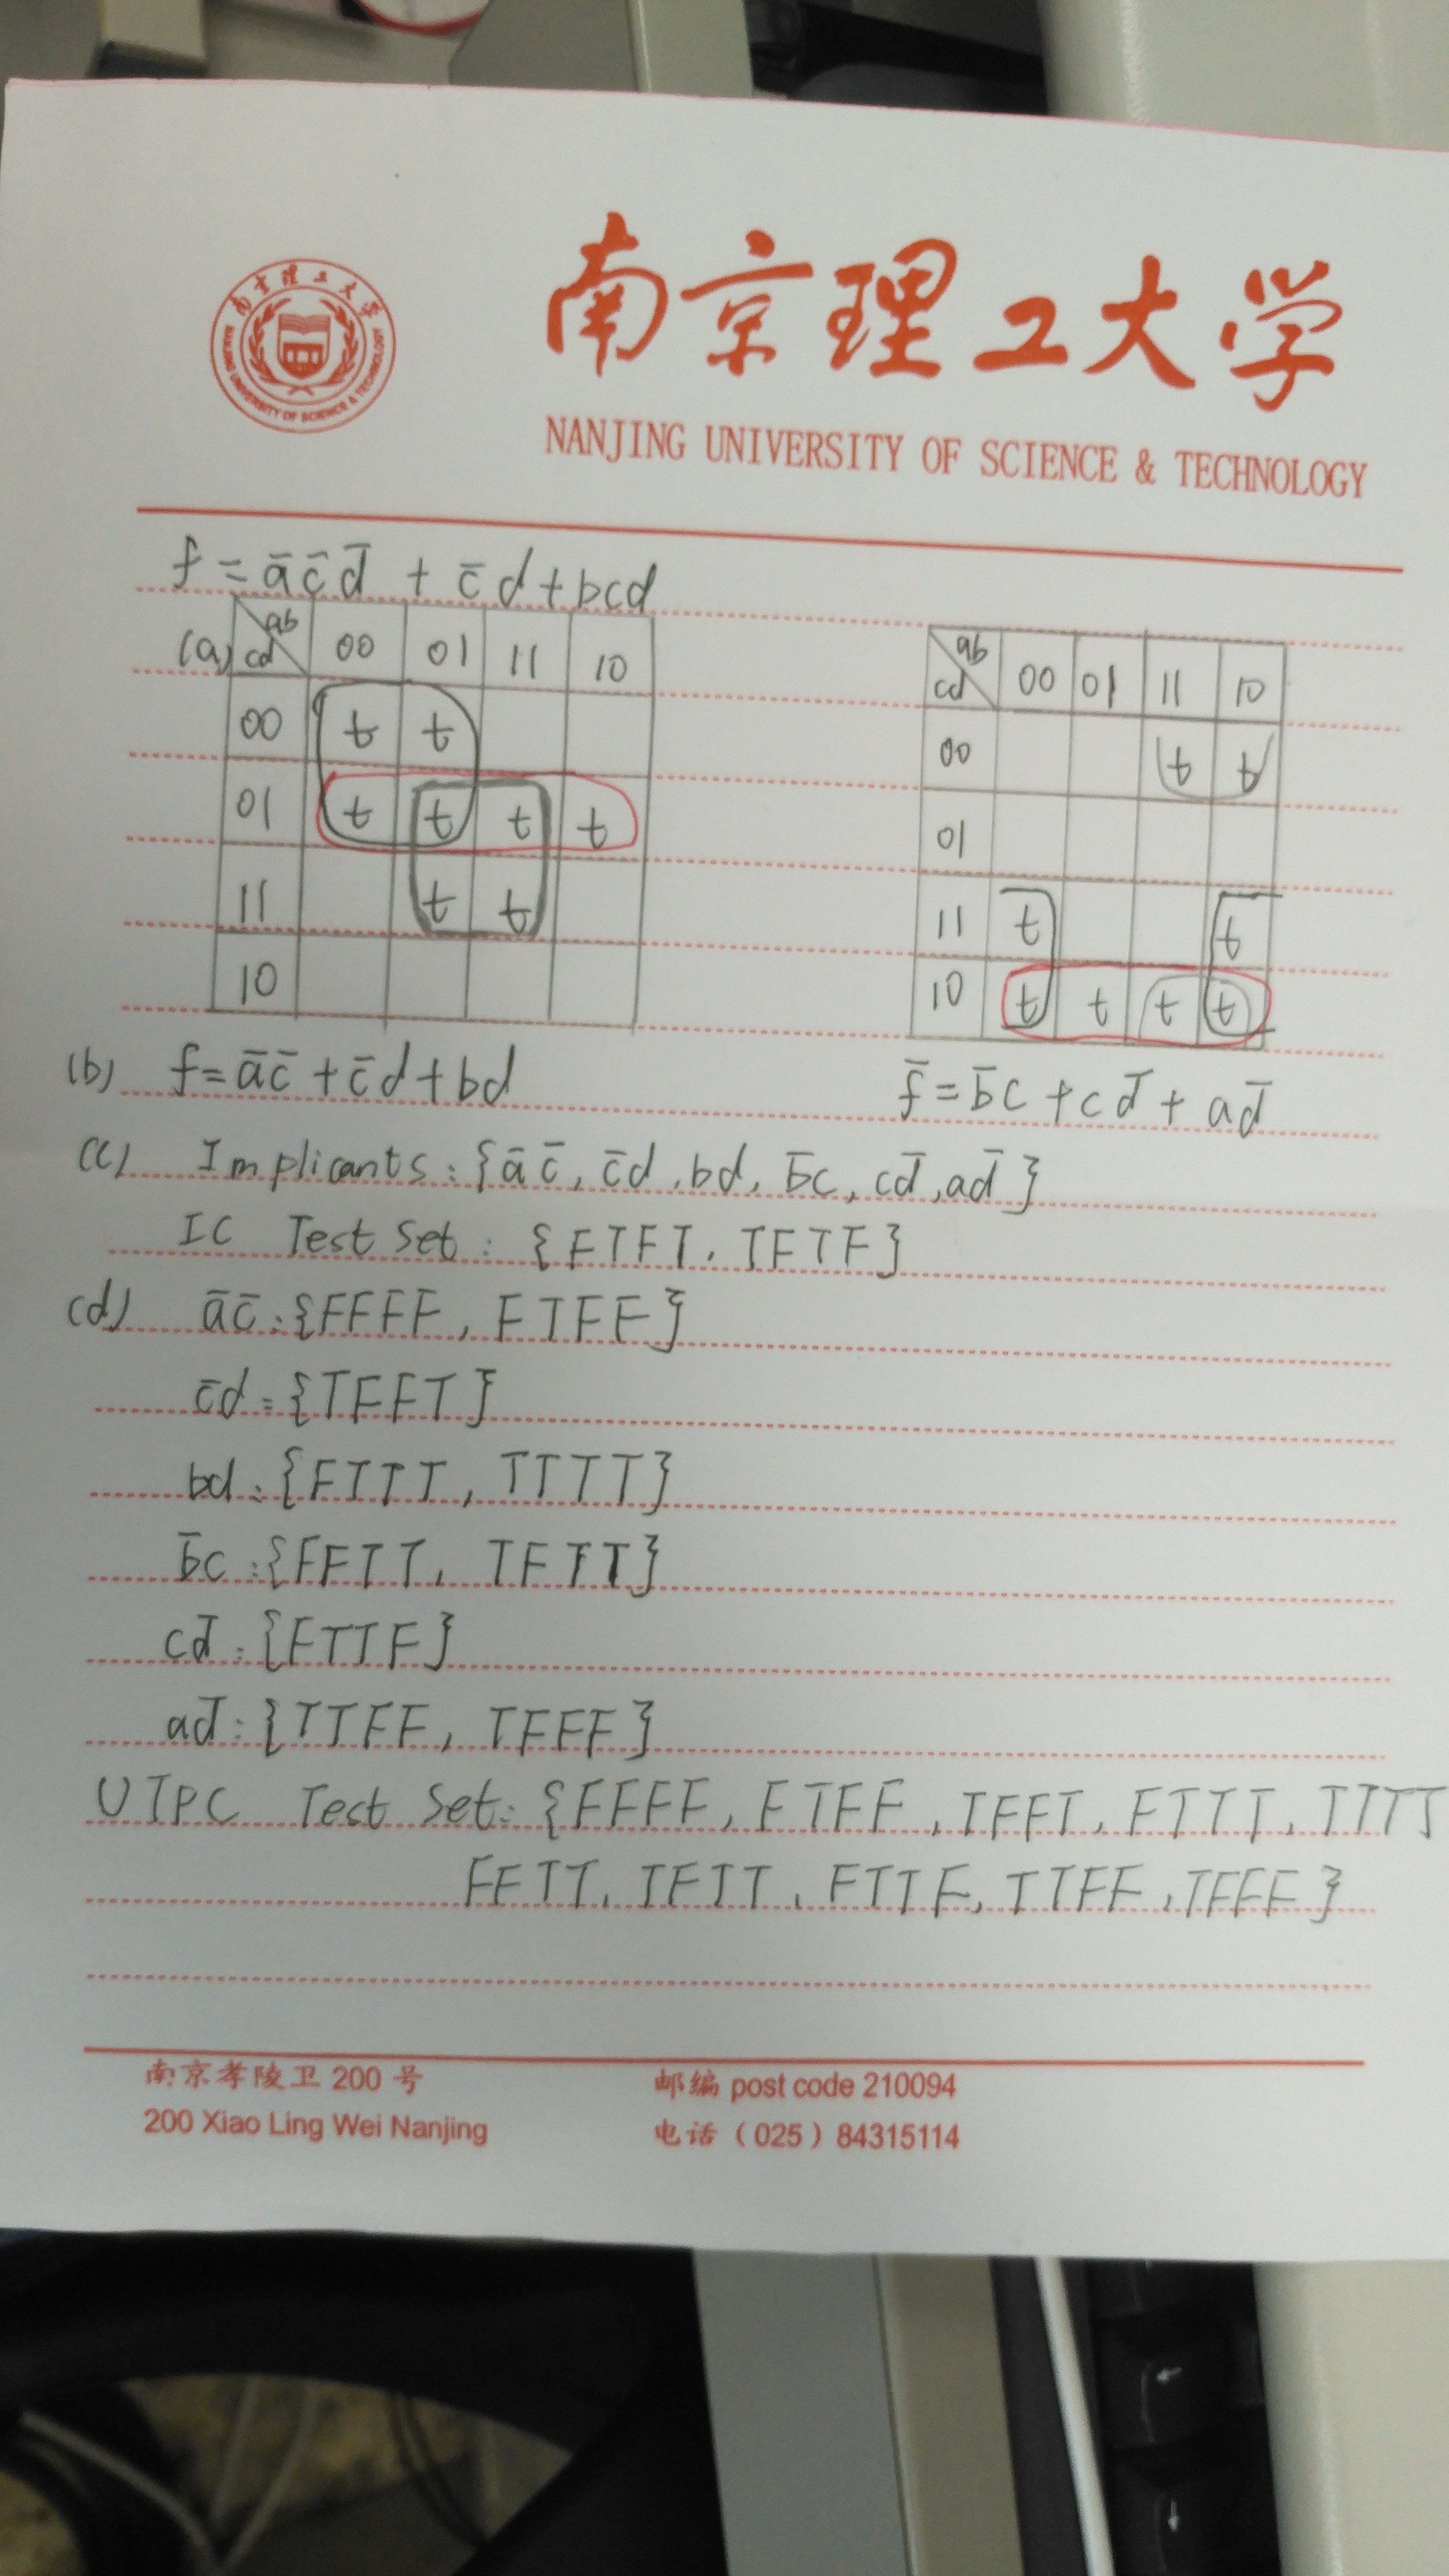 南京理工大学
NANJING UNIVERSITY OF SCIENCE & TECHNOLOGY
南京理工大学
NANJING UNIVERSITY OF SCIENCE & TECHNOLOGY
f = āc̄d̄ + c̄d + bcd
(a) ab cd 00 01 11 10
00 t t
01 t t t t
11 t t
10
ab cd 00 01 11 10
00 t t
01
11 t t
10 t t t t
(b) f = āc̄ + c̄d + bd
f̄ = b̄c + cd̄ + ad̄
(c) Implicants: {āc̄, c̄d, bd, b̄c, cd̄, ad̄}
IC Test Set: {FTFT, TFTF}
(d) āc̄: {FFFF, FTFF}
c̄d: {TFFT}
bd: {FTTT, TTTT}
b̄c: {FFTT, TFTT}
cd̄: {FTTF}
ad̄: {TTFF, TFFF}
UTPC Test Set: {FFFF, FTFF, TFFT, FTTT, TTTT
FFTT, TFTT, FTTF, TTFF, TFFF}
南京孝陵卫 200 号
200 Xiao Ling Wei Nanjing
邮编 post code 210094
电话（025）84315114